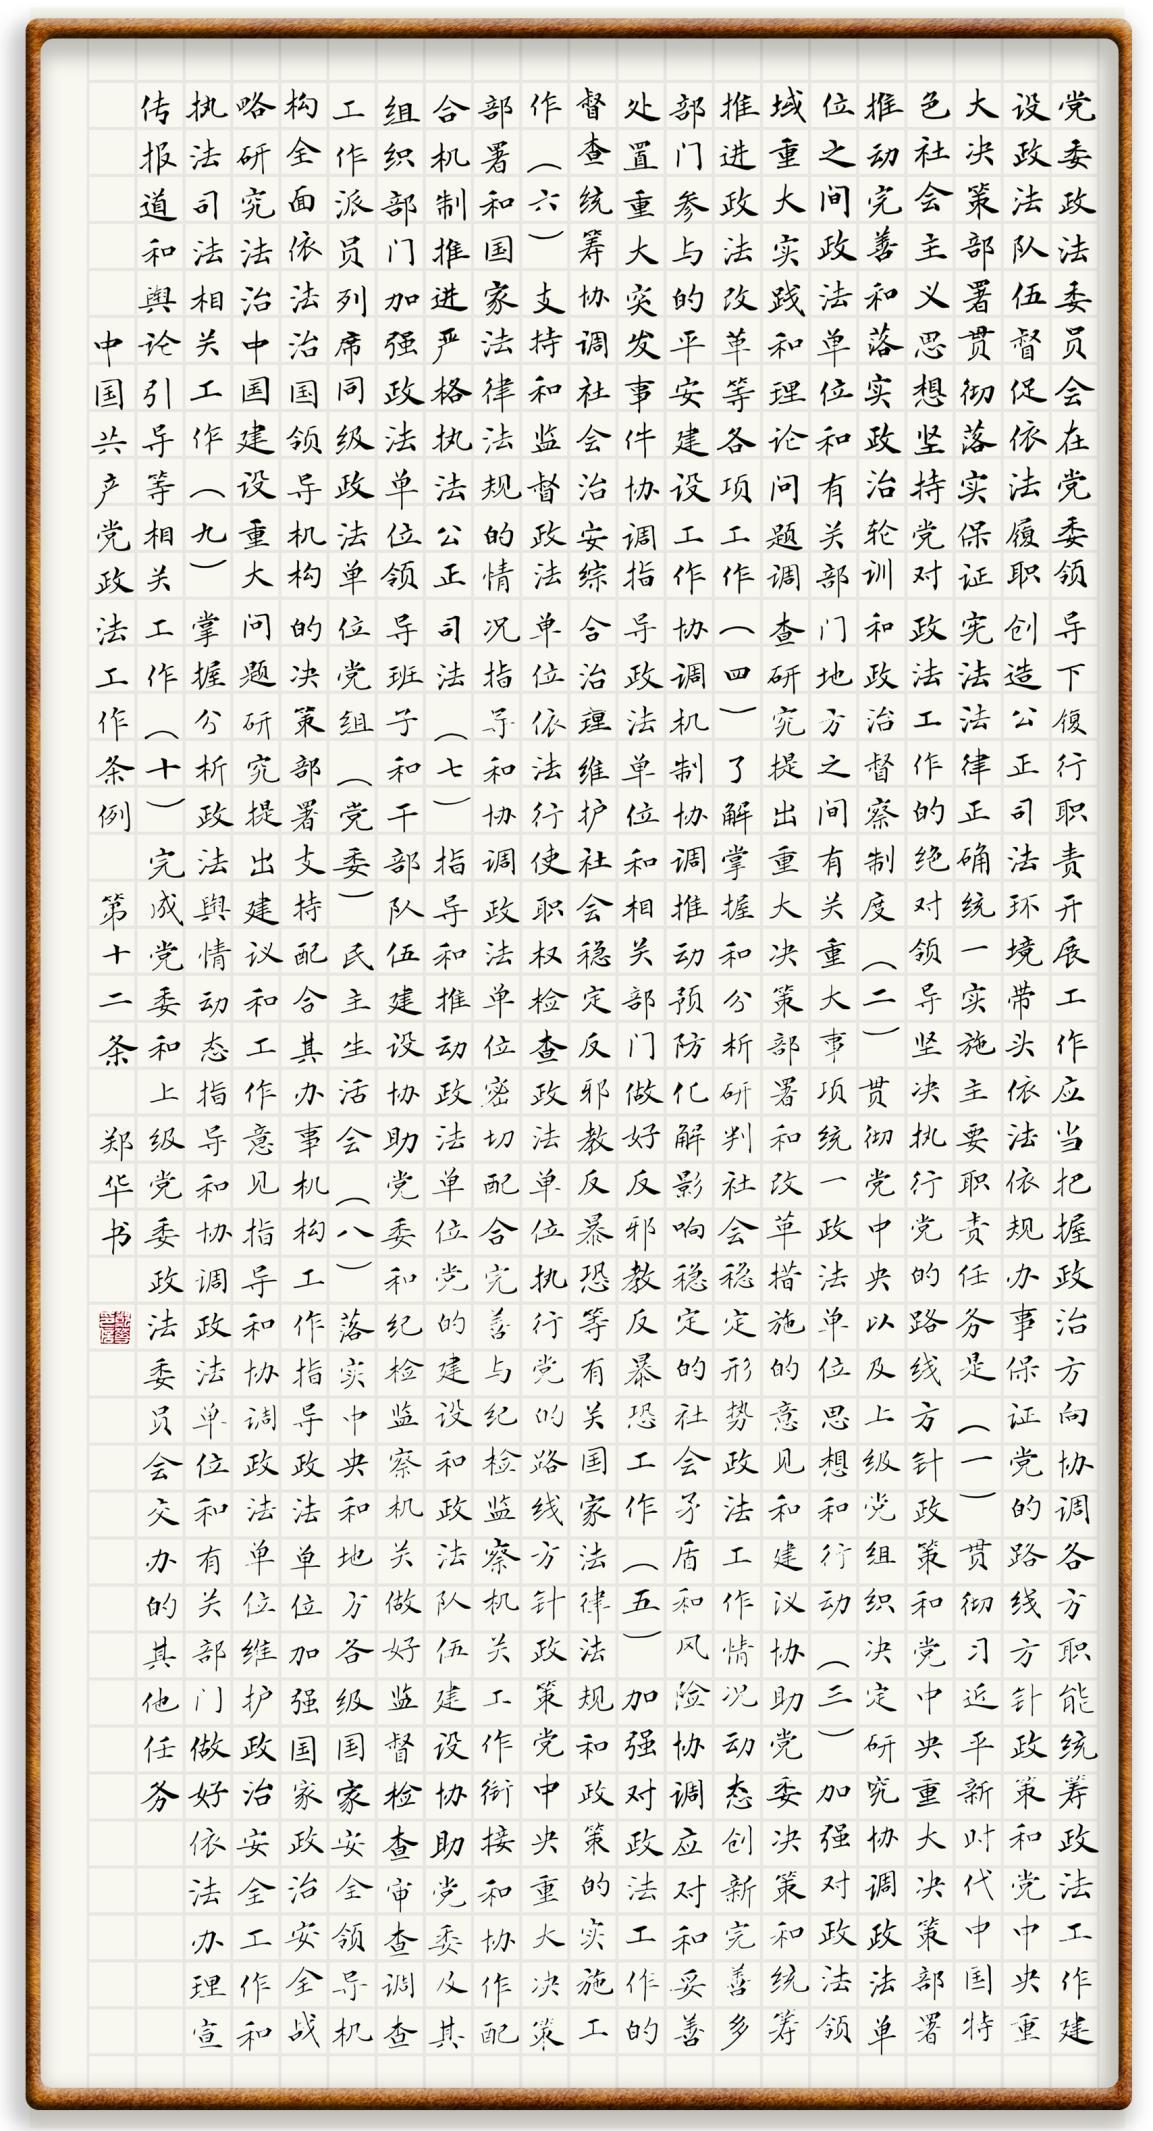 党委政法委员会在党委领导下履行职责开展工作应当把握政治方向协调各方职能统筹政法工作建
设政法队伍督促依法履职创造公正司法环境带头依法依规办事保证党的路线方针政策和党中央重
大决策部署贯彻落实保证宪法法律正确统一实施主要职责任务是（一）贯彻习近平新时代中国特
色社会主义思想坚持党对政法工作的绝对领导坚决执行党的路线方针政策和党中央重大决策部署
推动完善和落实政治轮训和政治督察制度（二）贯彻党中央以及上级党组织决定研究协调政法单
位之间政法单位和有关部门地方之间有关重大事项统一政法单位思想和行动（三）加强对政法领
域重大实践和理论问题调查研究提出重大决策部署和改革措施的意见和建议协助党委决策和统筹
推进政法改革等各项工作（四）了解掌握和分析研判社会稳定形势政法工作情况动态创新完善多
部门参与的平安建设工作协调机制协调推动预防化解影响稳定的社会矛盾和风险协调应对和妥善
处置重大突发事件协调指导政法单位和相关部门做好反邪教反暴恐工作（五）加强对政法工作的
督查统筹协调社会治安综合治理维护社会稳定反邪教反暴恐等有关国家法律法规和政策的实施工
作（六）支持和监督政法单位依法行使职权检查政法单位执行党的路线方针政策党中央重大决策
部署和国家法律法规的情况指导和协调政法单位密切配合完善与纪检监察机关工作衔接和协作配
合机制推进严格执法公正司法（七）指导和推动政法单位党的建设和政法队伍建设协助党委及其
组织部门加强政法单位领导班子和干部队伍建设协助党委和纪检监察机关做好监督检查审查调查
工作派员列席同级政法单位党组（党委）民主生活会（八）落实中央和地方各级国家安全领导机
构全面依法治国领导机构的决策部署支持配合其办事机构工作指导政法单位加强国家政治安全战
略研究法治中国建设重大问题研究提出建议和工作意见指导和协调政法单位维护政治安全工作和
执法司法相关工作（九）掌握分析政法舆情动态指导和协调政法单位和有关部门做好依法办理宣
传报道和舆论引导等相关工作（十）完成党委和上级党委政法委员会交办的其他任务
中国共产党政法工作条例 第十二条 郑华书